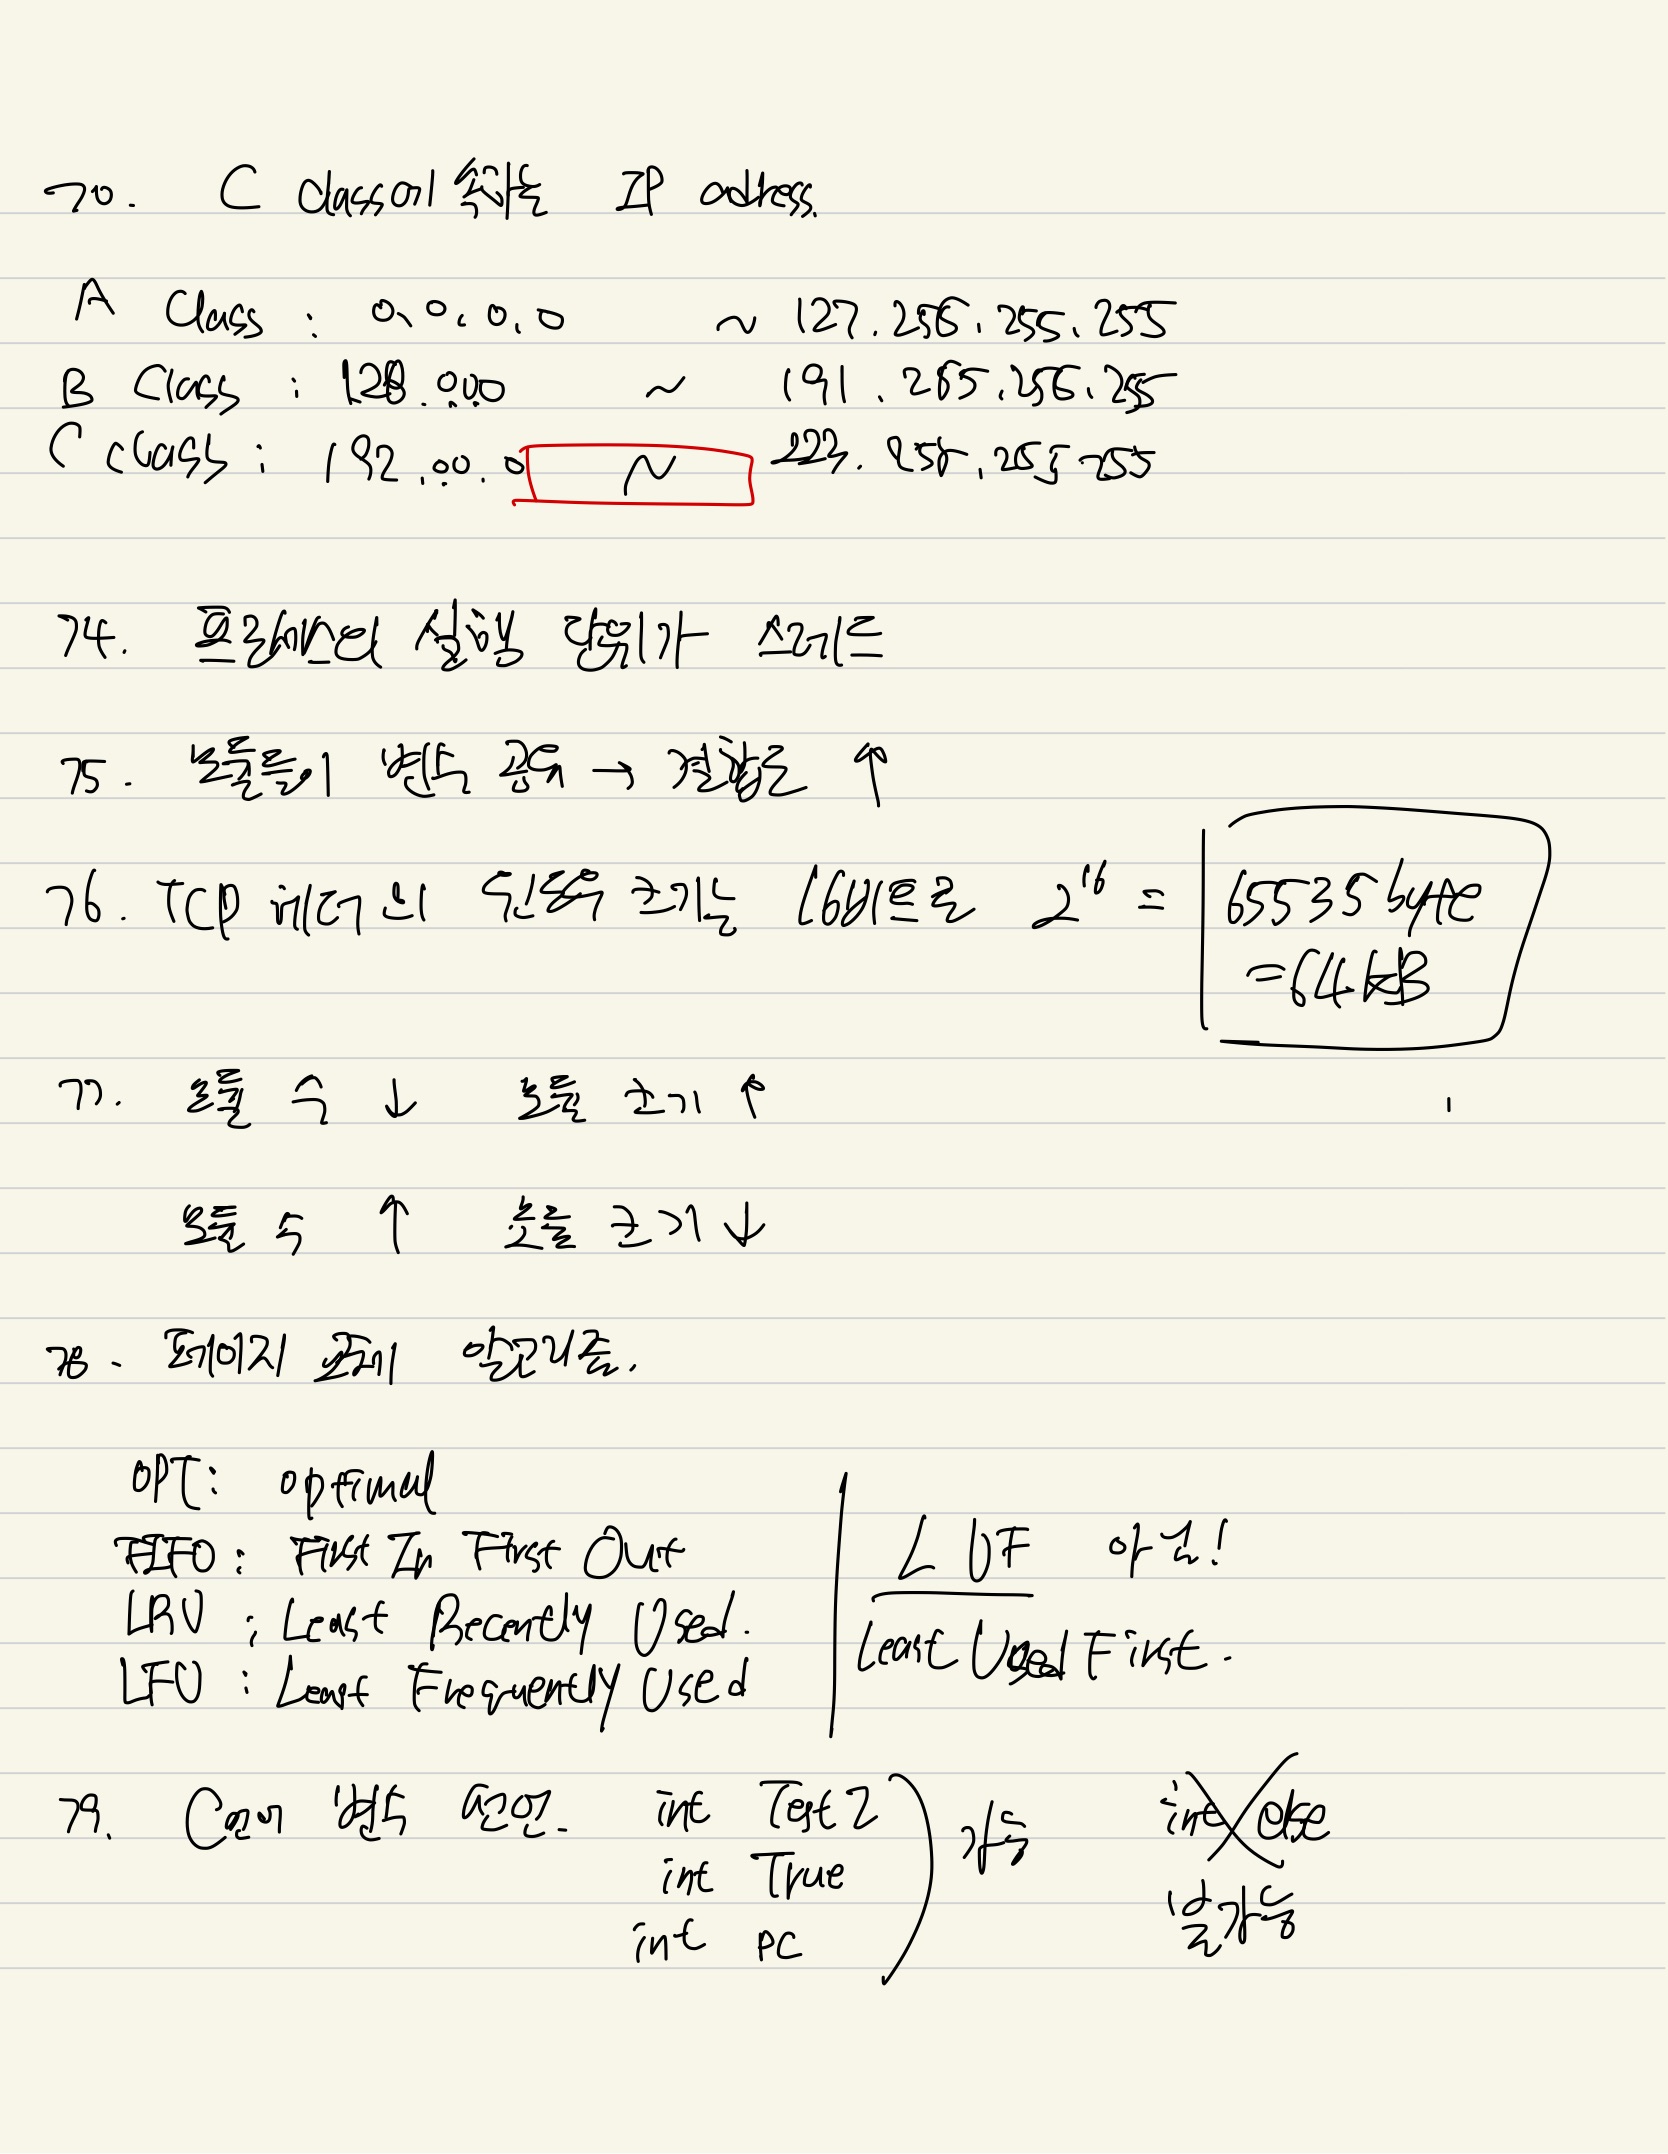 70. C class에 속하는 IP adress.
A Class : 0.0.0.0 ~ 127.256.255.255
B Class : 128.0.0.0 ~ 191.265.256.255
C class : 192.0.0.0 ~ 223.255.255.255
74. 프로세스의 실행 단위가 스레드
75. 모듈들이 변수 공유 → 결합도 ↑
76. TCP 헤더의 크기는 16비트로 2^16 = 65535 byte
= 64 kB
77. 모듈 수 ↓ 모듈 크기 ↑
모듈 수 ↑ 모듈 크기 ↓
78. 페이지 교체 알고리즘.
OPT : optimal
FIFO : First In First Out
LRU : Least Recently Used.
LFU : Least Frequently Used
LUF 아님!
Least Used First.
79. C언어 변수 선언. int Test2
int True
int PC
가능
int else
불가능